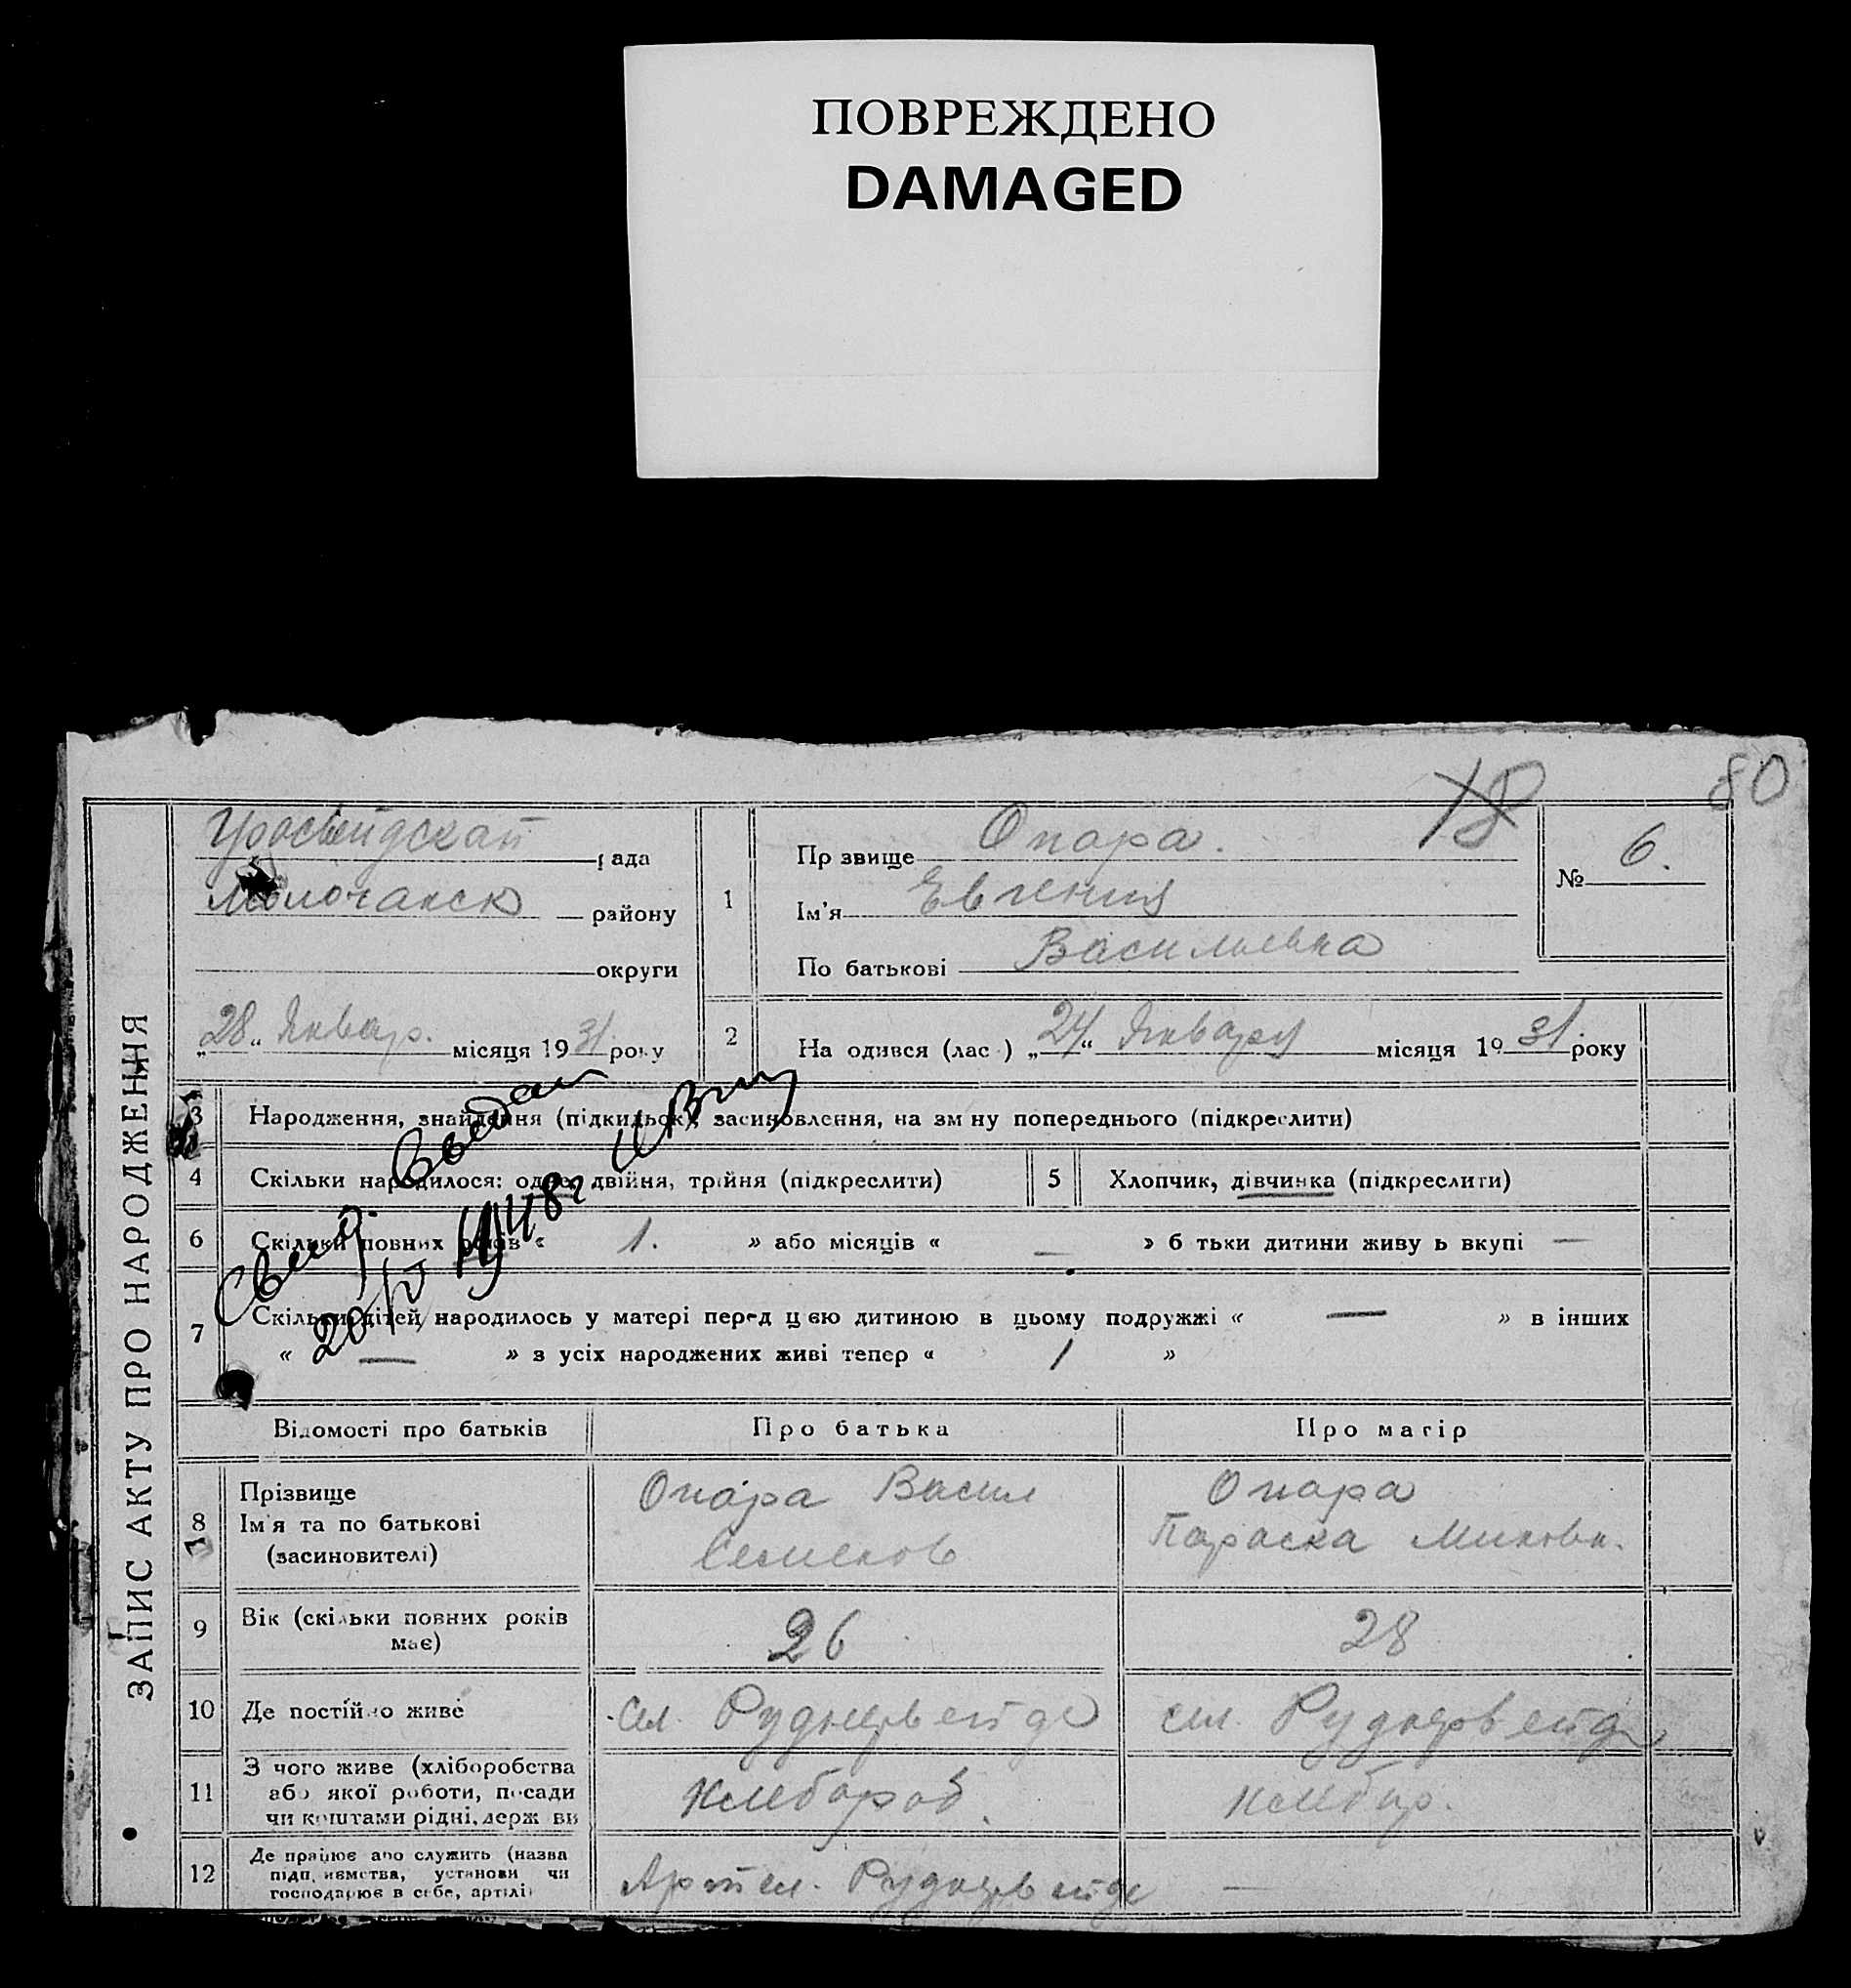 ПОВРЕЖДЕНО
DAMAGED
80
18
рада
Молочанск району
округи
„28“ Январ. місяця 1931 року
1
Пр звище Опара.
Ім'я Евгения
По батькові Васильевна
№ 6.
2
На одився (лас ) „24“ Января місяця 19 31 року
ЗАПИС АКТУ ПРО НАРОДЖЕННЯ
3 Народження, знайдення (підкидьок), засиновлення, на зм ну попереднього (підкреслити)
4 Скільки народилося: одне, двійня, трійня (підкреслити)
5 Хлопчик, дівчинка (підкреслити)
6 Скільки повних років « 1. » або місяців « — » б тьки дитини живу ь вкупі —
7 Скільки дітей народилось у матері перед цією дитиною в цьому подружжі « — » в інших
« — » з усіх народжених живі тепер « 1 »
Свид.
1948г
Відомості про батьків
Про батька
Про матір
8 Прізвище
Ім'я та по батькові
(засиновителі)
Опара Васил
Семенов
Опара
Параска
9 Вік (скільки повних років
має)
26
28
10 Де постійно живе
сел. Руднервейде
сел. Руднервейде
11 З чого живе (хліборобства
або якої роботи, посади
чи коштами рідні, держ ви
Хлебороб.
Хлебор.
12 Де працює або служить (назва
підп, иємства, установи чи
господарює в себе, артілі)
Артел. Руднервейде
—